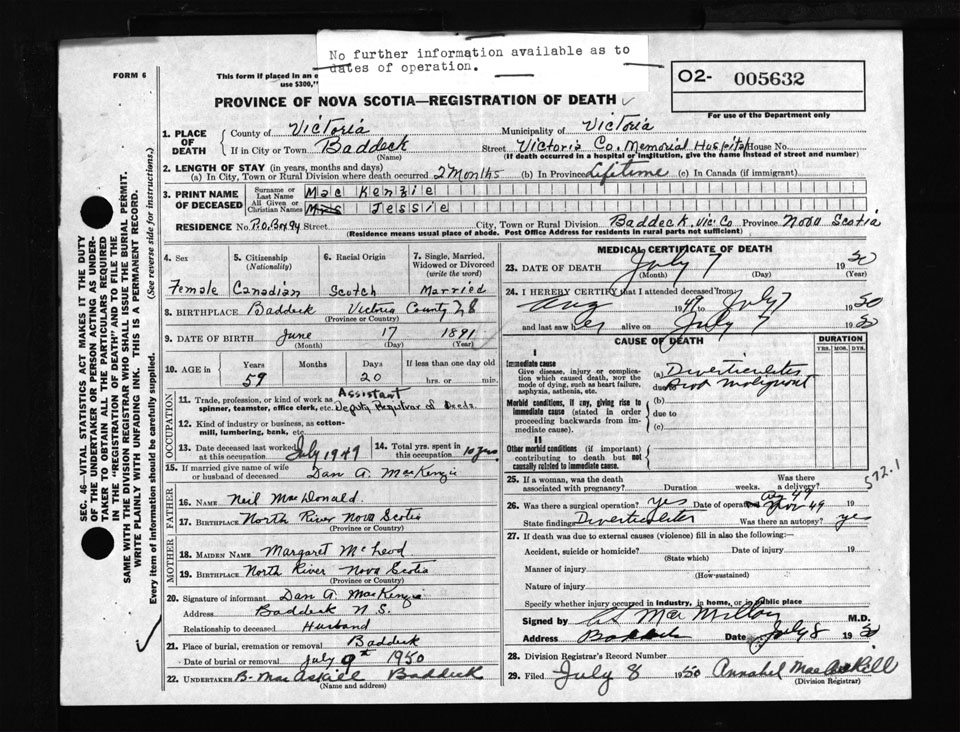 No further information available as to
dates of operation.
FORM 6
This form if placed in an e
use $300,
O2- 005632
For use of the Department only
PROVINCE OF NOVA SCOTIA—REGISTRATION OF DEATH
1. PLACE OF DEATH County of Victoria Municipality of Victoria
If in City or Town Baddeck Street Victoria Co. Memorial Hospital House No.
(Name) (If death occurred in a hospital or institution, give the name instead of street and number)
2. LENGTH OF STAY (in years, months and days)
(a) In City, Town or Rural Division where death occurred 2 Months (b) In Province Lifetime (c) In Canada (if immigrant)
3. PRINT NAME OF DECEASED Surname or Last Name Mac Kenzie
All Given or Christian Names Mrs Jessie
RESIDENCE No. P.O. Box 94 Street City, Town or Rural Division Baddeck, Vic Co Province Nova Scotia
(Residence means usual place of abode. Post Office Address for residents in rural parts not sufficient)
4. Sex 5. Citizenship (Nationality) 6. Racial Origin 7. Single, Married, Widowed or Divorced (write the word)
Female Canadian Scotch Married
8. BIRTHPLACE Baddeck Victoria County
(Province or Country)
9. DATE OF BIRTH June 17 1891
(Month) (Day) (Year)
10. AGE in Years Months Days If less than one day old
59 20 hrs. or min.
OCCUPATION
11. Trade, profession, or kind of work as Assistant
spinner, teamster, office clerk, etc. Deputy Registrar of Deeds
12. Kind of industry or business, as cotton-
mill, lumbering, bank, etc.
13. Date deceased last worked at this occupation July 1949 14. Total yrs. spent in this occupation 10 yrs.
15. If married give name of wife
or husband of deceased Dan A. MacKenzie
FATHER
16. NAME Neil MacDonald.
17. BIRTHPLACE North River Nova Scotia
(Province or Country)
MOTHER
18. MAIDEN NAME Margaret McLeod
19. BIRTHPLACE North River Nova Scotia
(Province or Country)
20. Signature of informant Dan A. MacKenzie
Address Baddeck N.S.
Relationship to deceased Husband
21. Place of burial, cremation or removal Baddeck
Date of burial or removal July 9th 1950
22. UNDERTAKER B. MacAskill Baddeck
(Name and address)
MEDICAL CERTIFICATE OF DEATH
23. DATE OF DEATH July 7 1950
(Month) (Day) (Year)
24. I HEREBY CERTIFY that I attended deceased from
Aug 1949 to July 7 1950
and last saw her alive on July 7 1950
CAUSE OF DEATH DURATION
YRS. MOS. DYS.
I
Immediate cause
Give disease, injury or complica-
tion which caused death, not the
mode of dying, such as heart failure,
asphyxia, asthenia, etc.
(a) Diverticulitis
due to not malignant
Morbid conditions, if any, giving rise to
immediate cause (stated in order
proceeding backwards from im-
mediate cause).
(b)
due to
(c)
II
Other morbid conditions (if important)
contributing to death but not
causally related to immediate cause.
25. If a woman, was the death
associated with pregnancy? Duration weeks. Was there a delivery?
572.1
26. Was there a surgical operation? yes Date of operation Aug 49 Nov 49
State findings Diverticulitis Was there an autopsy? yes
27. If death was due to external causes (violence) fill in also the following:—
Accident, suicide or homicide? Date of injury 19
(State which)
Manner of injury
(How sustained)
Nature of injury
Specify whether injury occurred in industry, in home, or in public place
Signed by MacMillan M.D.
Address Baddeck Date July 8 1950
28. Division Registrar's Record Number
29. Filed July 8 1950 Annabel MacAskill
(Division Registrar)
SEC. 46—VITAL STATISTICS ACT MAKES IT THE DUTY
OF THE UNDERTAKER OR PERSON ACTING AS UNDER-
TAKER TO OBTAIN ALL THE PARTICULARS REQUIRED
IN THE "REGISTRATION OF DEATH" AND TO FILE THE
SAME WITH THE DIVISION REGISTRAR WHO SHALL ISSUE THE BURIAL PERMIT.
WRITE PLAINLY WITH UNFADING INK. THIS IS A PERMANENT RECORD.
Every item of information should be carefully supplied. (See reverse side for instructions.)